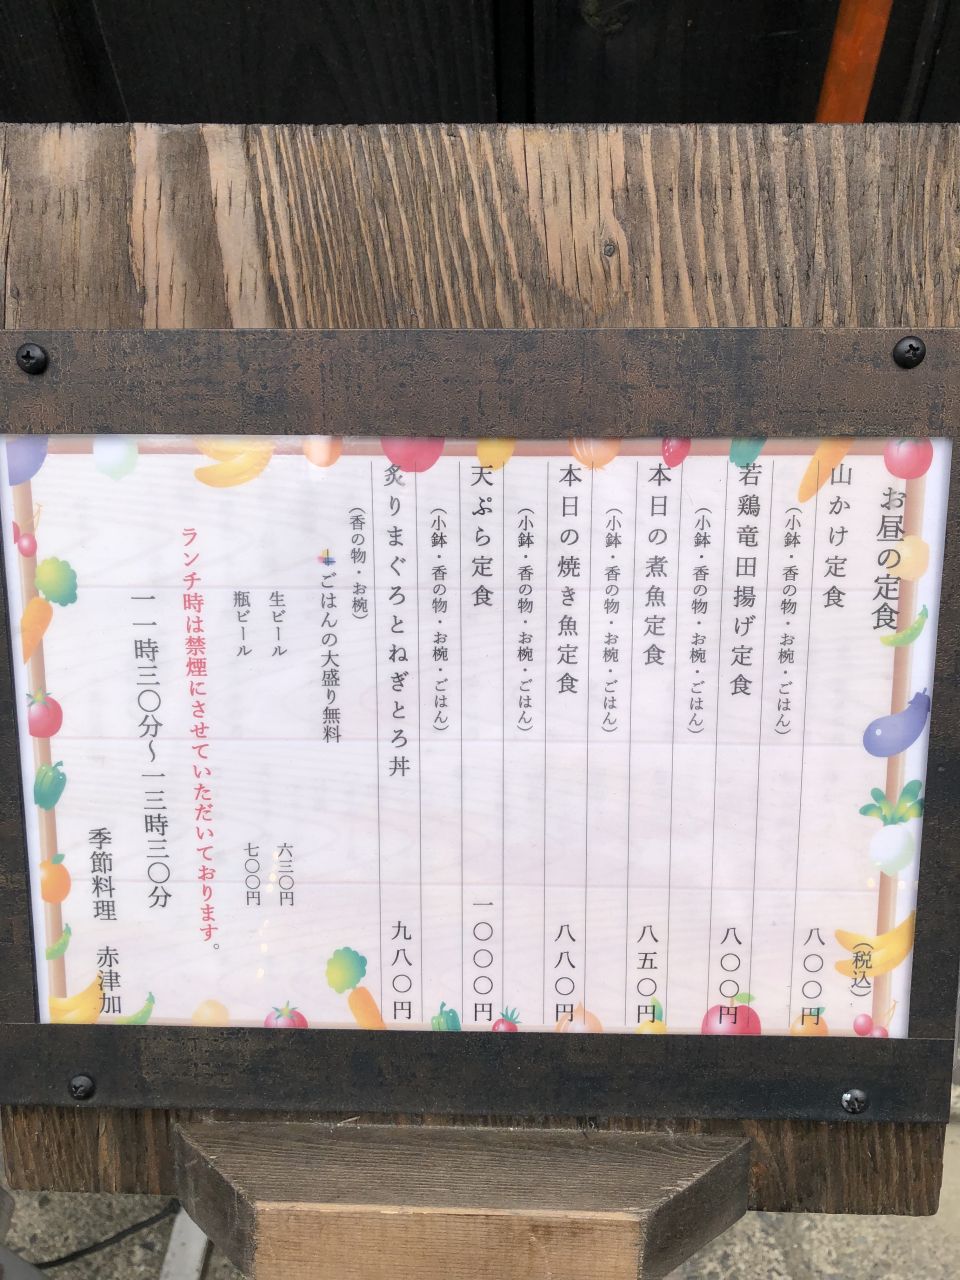 お昼の定食
(税込)
山かけ定食 八〇〇円
(小鉢・香の物・お椀・ごはん)
若鶏竜田揚げ定食 八〇〇円
(小鉢・香の物・お椀・ごはん)
本日の煮魚定食 八五〇円
(小鉢・香の物・お椀・ごはん)
本日の焼き魚定食 八八〇円
(小鉢・香の物・お椀・ごはん)
天ぷら定食 一〇〇〇円
(小鉢・香の物・お椀・ごはん)
炙りまぐろとねぎとろ丼 九八〇円
(香の物・お椀)
ごはんの大盛り無料
生ビール 六三〇円
瓶ビール 七〇〇円
ランチ時は禁煙にさせていただいております。
一一時三〇分～一三時三〇分
季節料理 赤津加